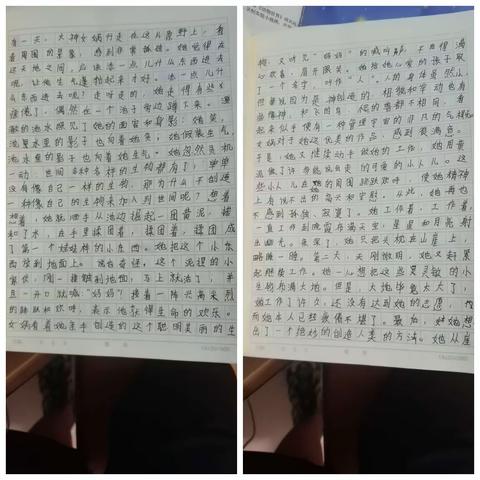 有一天，大神女娲行走在这片原野上，看
看周围的景象，感到非常孤独。她觉得在
这天地之间，应该添一点儿什么东西进去
呢，让他生气蓬勃起来才好。添一点儿什
么东西进去呢？走呀走的，她走得有些
疲倦了，偶然在一个池子旁边蹲下来。澄
澈的池水照见了她的面容和身影：她笑，
池里水里的影子也向着她笑；她假装生气，
池水里的影子也向着她生气。她忽然灵机
一动：世间各种各样的生物都有了，单单
没有像自己一样的生物，那为什么不创造
一种像自己的生物来加入到世间呢？想着
想着，她就顺手从池边掘起一团黄泥，掺
和了水，在手里揉团着，揉团着，揉团成
了第一个娃娃样的小东西。她把这个小东
西放到地面上。说也奇怪，这个泥捏的小
家伙，刚一接触到地面，马上就活了，并
且一开口就喊“妈妈”接着一阵兴高采烈
的跳跃和欢呼，表示他获得生命的欢乐。
女娲看着她亲手创造的这个聪明美丽的生
物，又听见“妈妈”的喊叫声，不由得满
心欢喜，眉开眼笑。她给她心爱的孩子取
了一个名字，叫作“人”。人的身体虽然小，
但据说因为是神创造的，相貌和举动也有
些像神，和飞的鸟、爬的兽都不相同，看
起来似乎便有一种管理宇宙的非凡的气概。
女娲对于她这优美的作品，感到很满意。
于是，她又继续动手做她的工作，她用黄
泥做了许多能说会走的可爱的小人儿。这
些小人儿在她的周围跳跃欢呼，使她精神
上有说不出的高兴和安慰。从此，她再也
不感到孤独、寂寞了。她工作着，工作着，
一直工作到晚霞布满天空，星星和月亮射
出幽光。夜深了，她只把头枕在山崖上，
略睡一睡，第二天，天刚微明，她又赶紧
起继续工作。她一心想把这些灵敏的小
生物布满大地。但是，大地毕竟太大了，
她工作了许久，还没有达到她的志愿，
而她本人已经疲倦不堪了。最后，她想
出了一个绝妙的创造人类的方法。她从崖